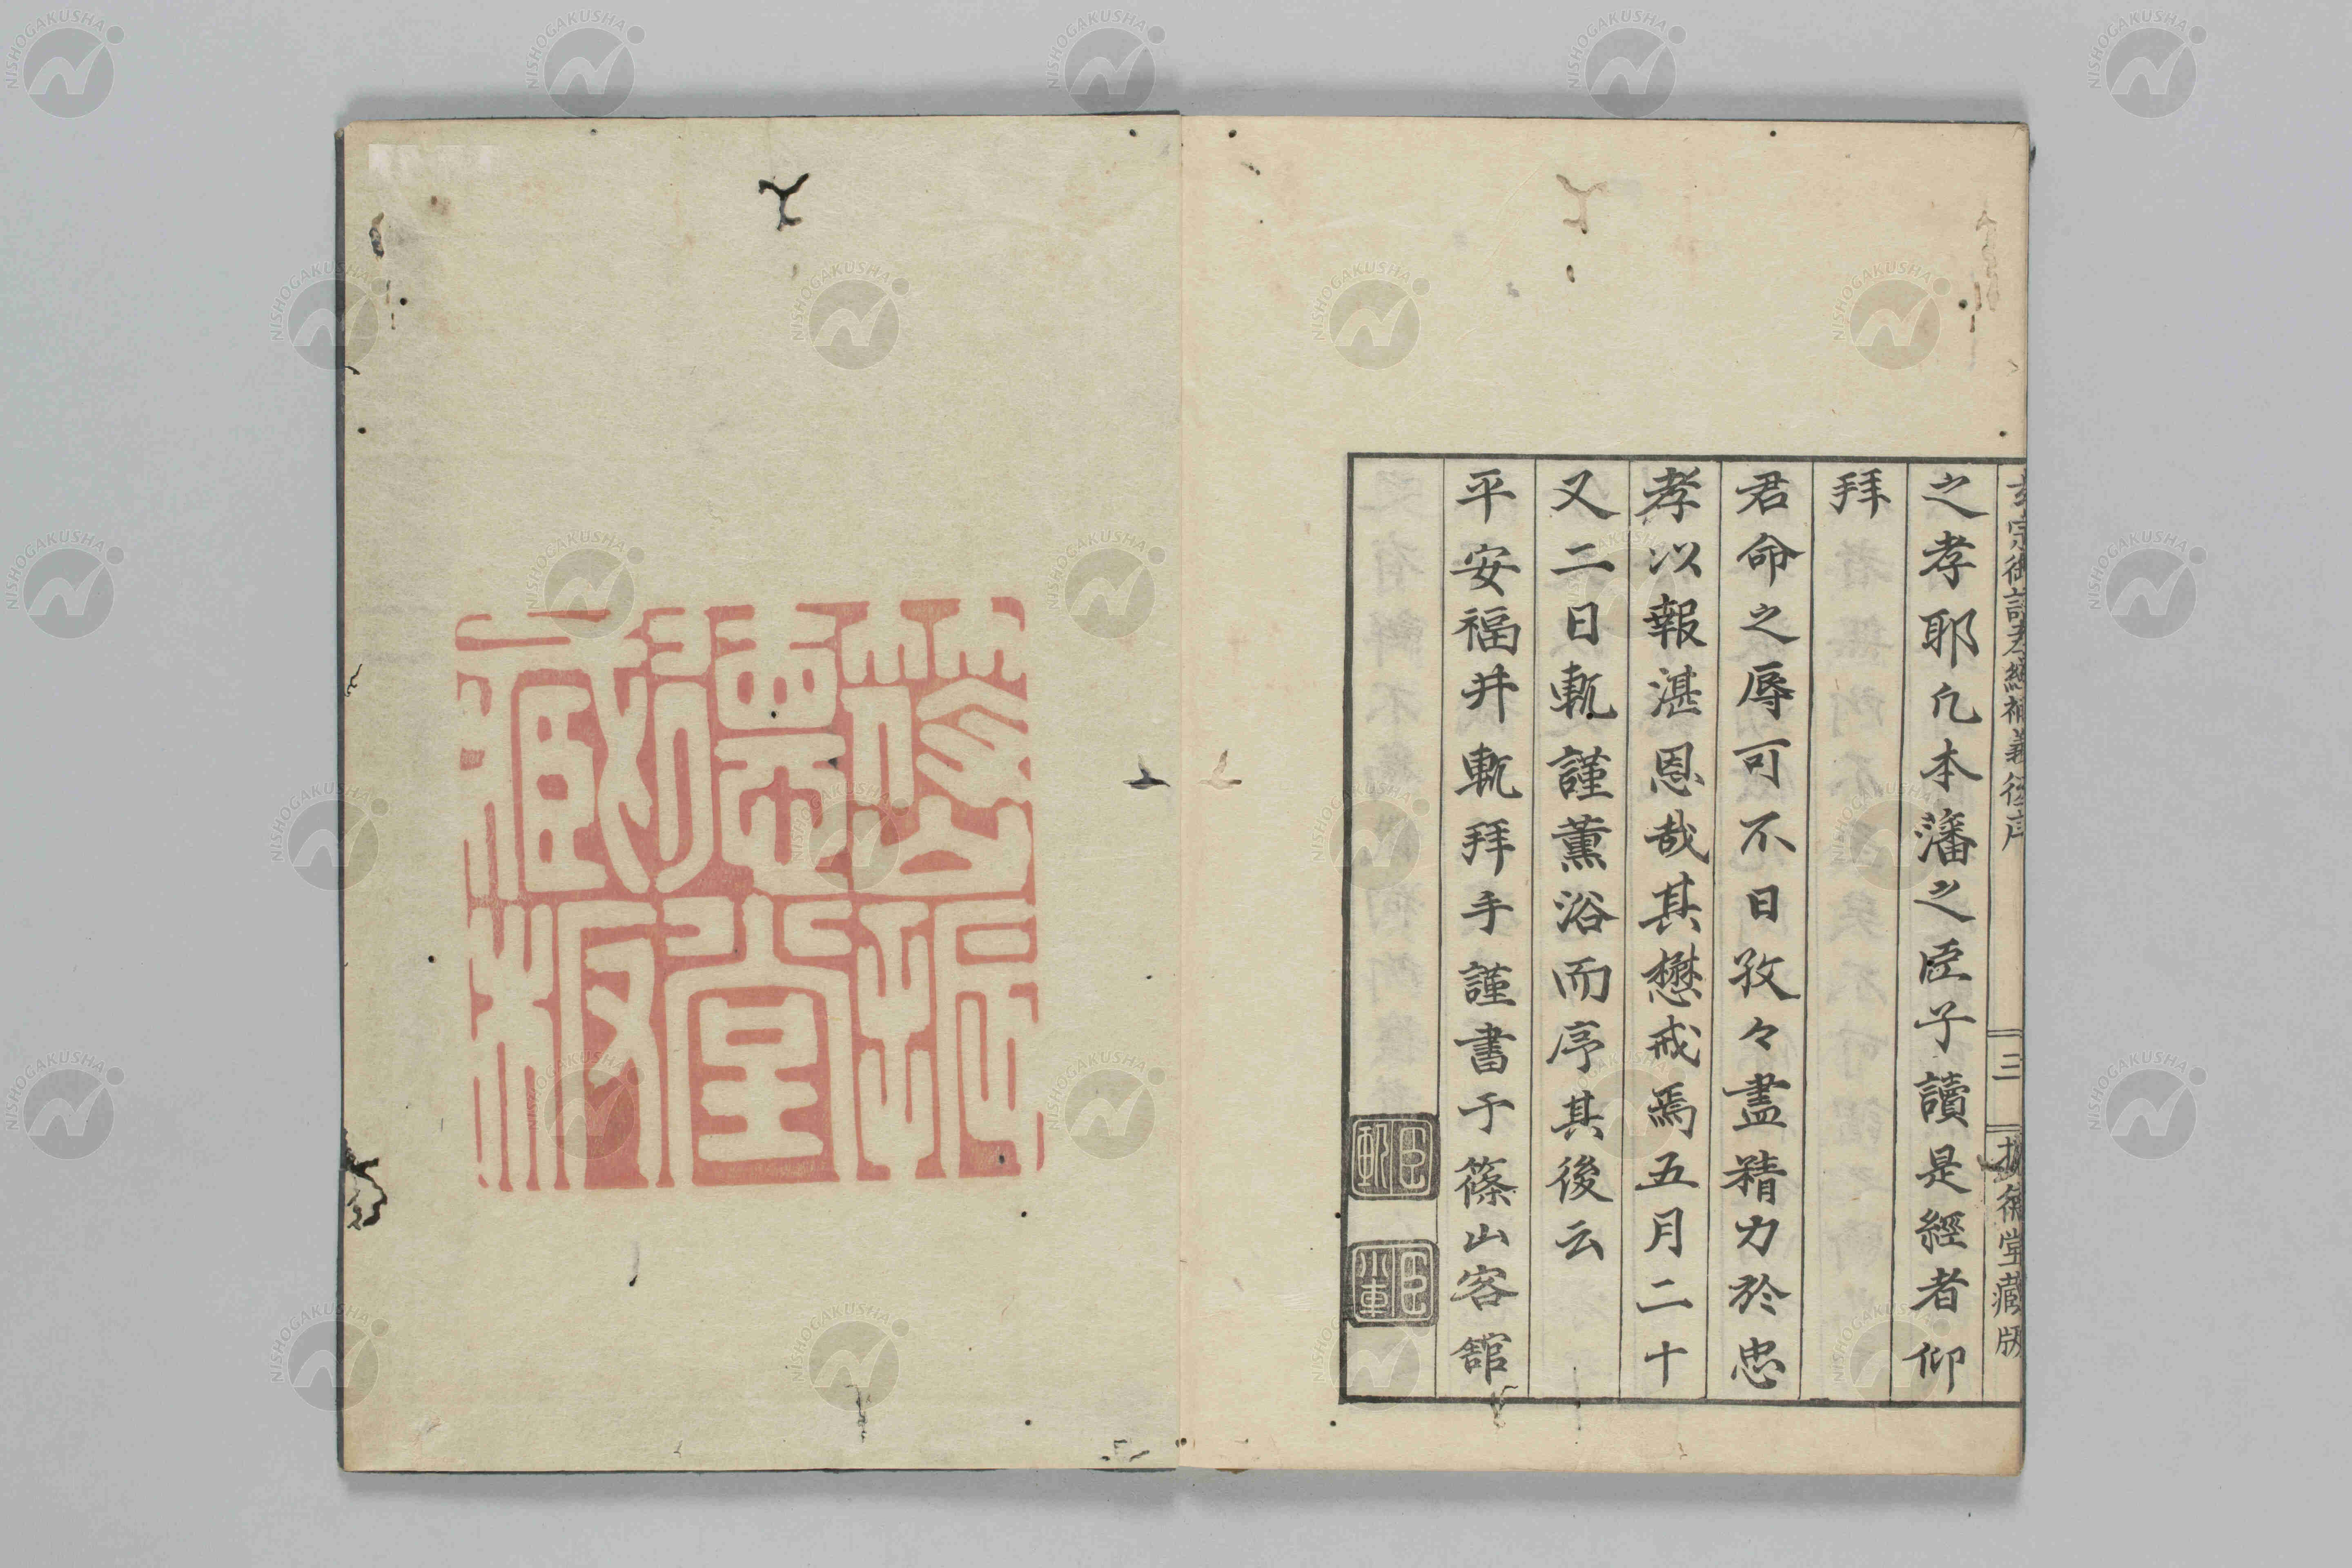 玄宗御註孝經補義後序 三 振德堂藏版
之孝耶凢本藩之臣子讀是經者仰
拜
君命之辱可不日孜々盡精力於忠
孝以報湛恩哉其懋戒焉五月二十
又二日軏謹薰浴而序其後云
平安福井軏拜手謹書于篠山客舘
臣軏
臣小車
篠山振
德堂
藏板
NISHOGAKUSHA